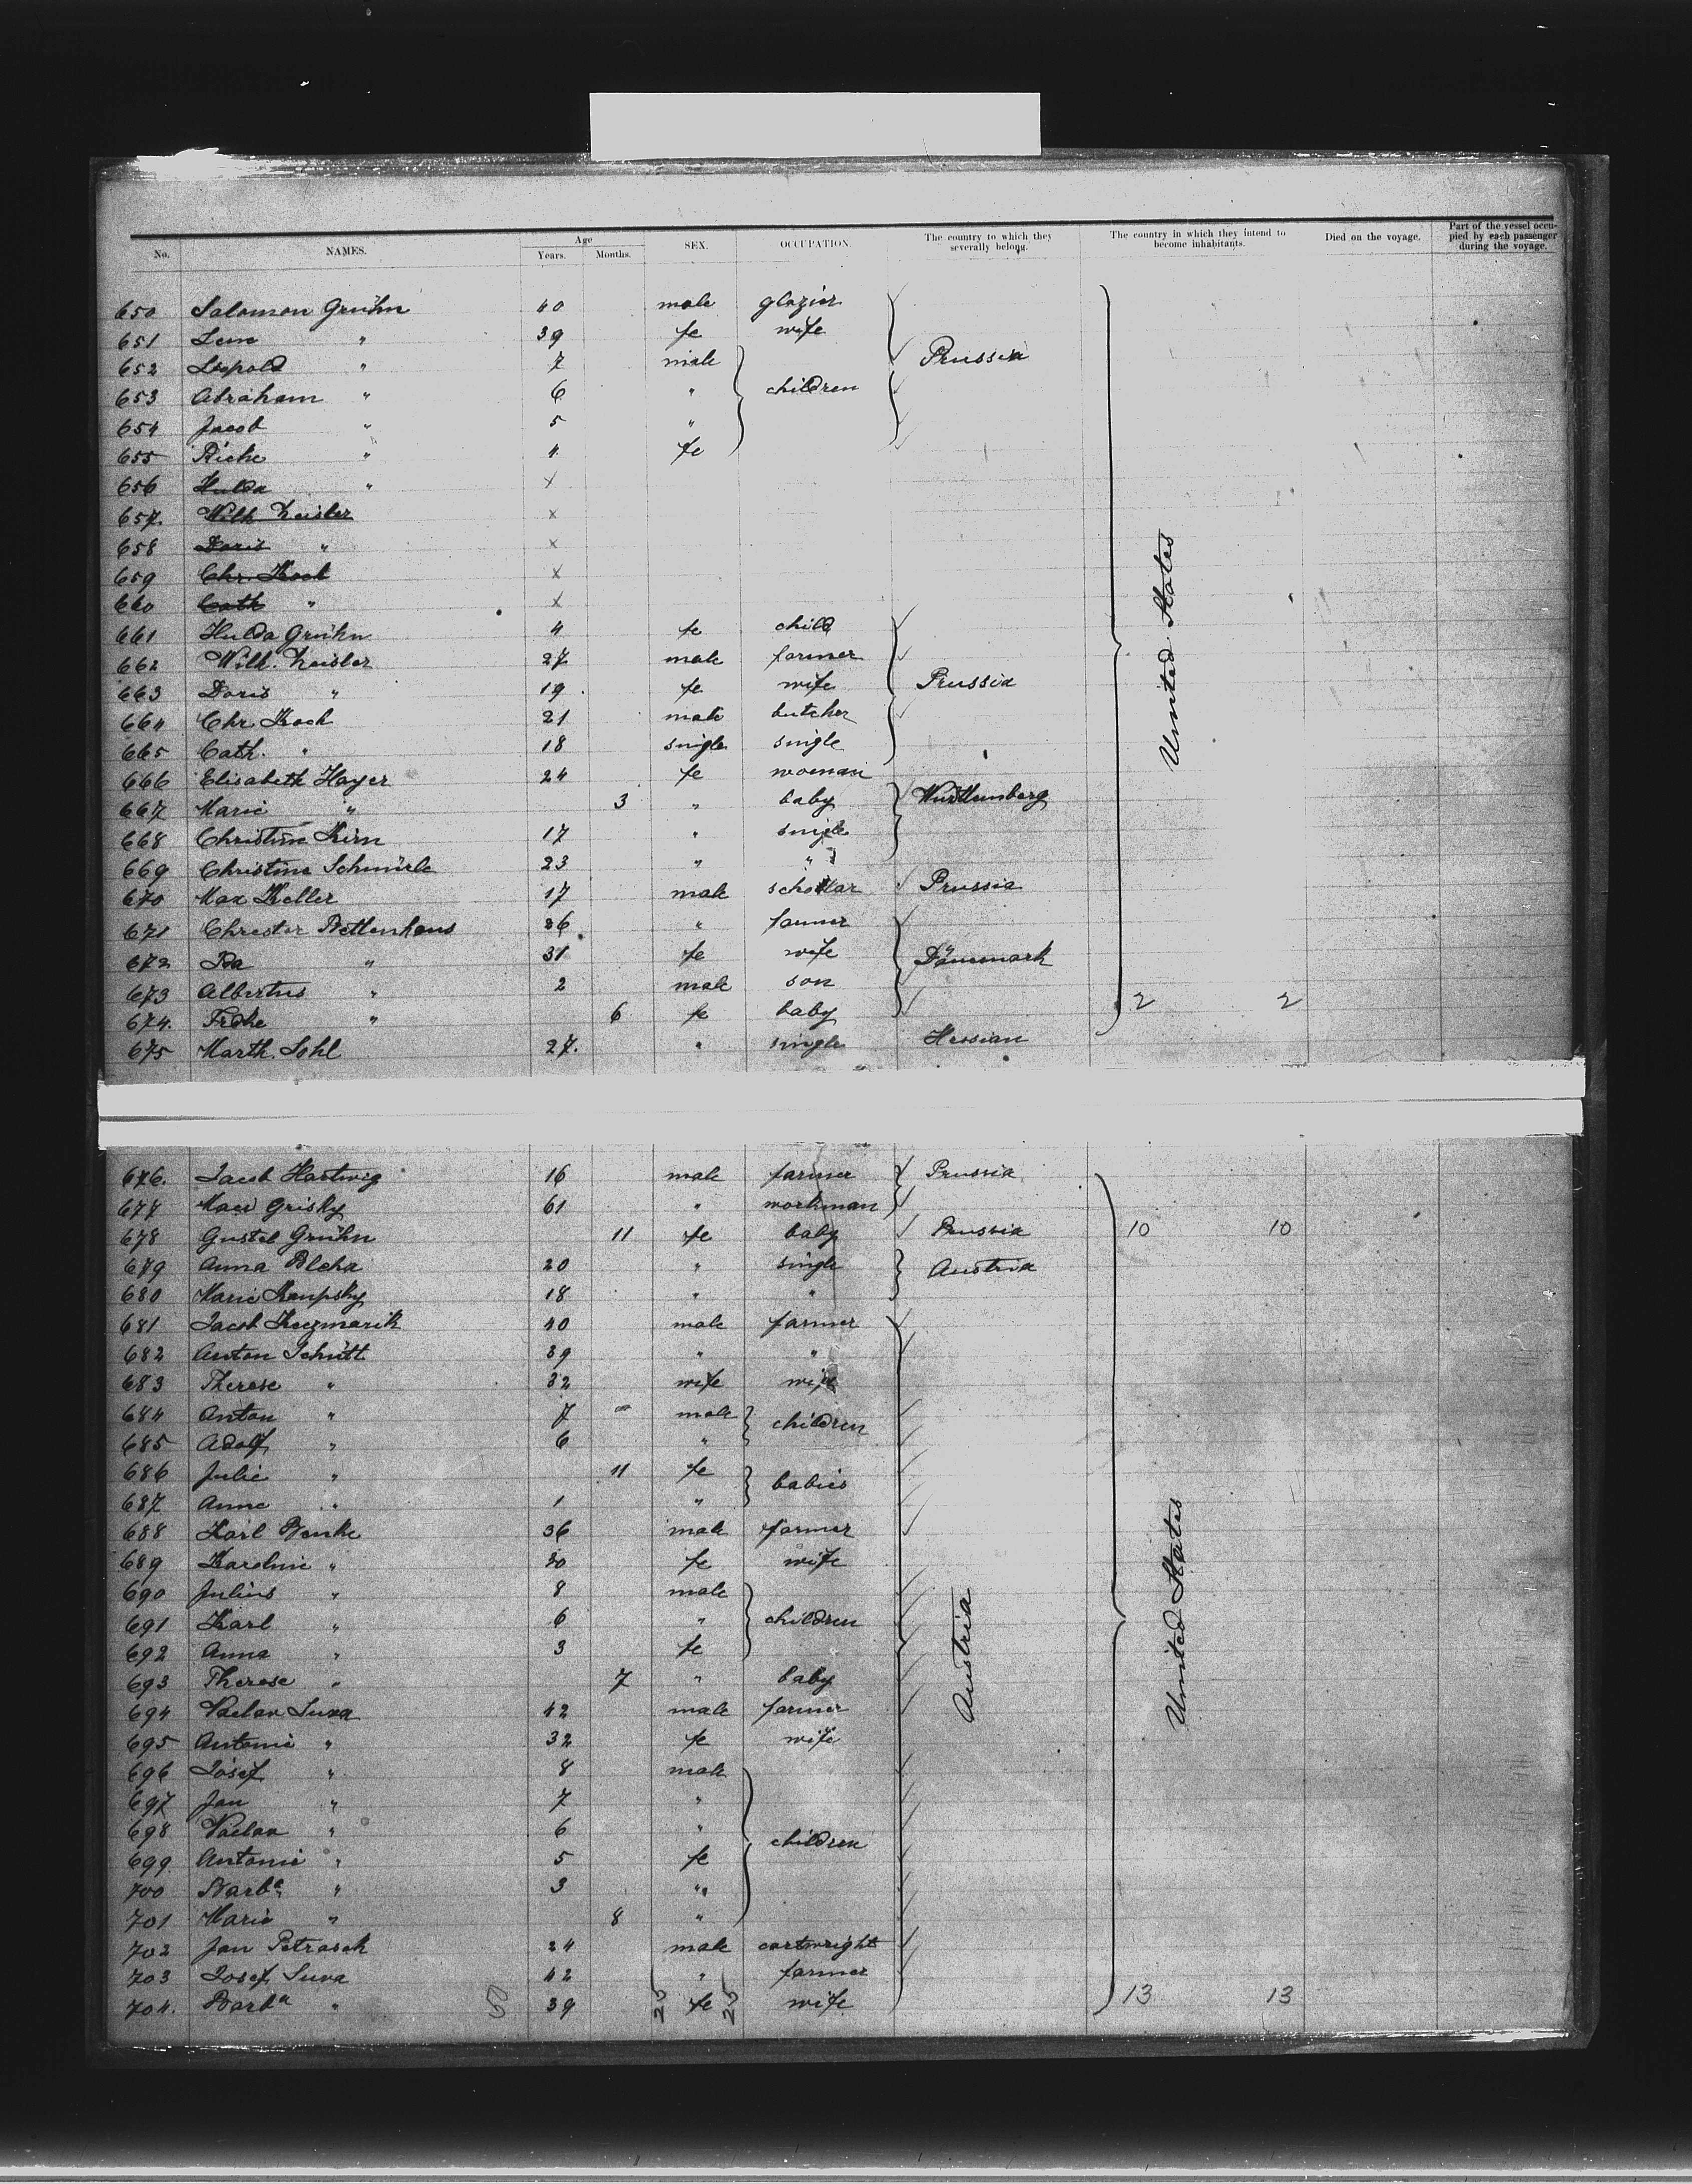 No. NAMES. Age Years. Months. SEX. OCCUPATION. The country to which they severally belong. The country in which they intend to become inhabitants. Died on the voyage. Part of the vessel occupied by each passenger during the voyage.
650 Salomon Gruhn 40 male glazier
651 " 39 fe wife
652 Leopold " 7 male Prussia
653 Abraham " 6 " children
654 Jacob " 5 "
655 Riche " 4 fe
656 Hulda " x
657. Wilh Zeisler x
658 Doris " x
659 Chr. Koch x
660 Cath " x
661 Hulda Gruhn 4 fe child
662 Wilh. Zeisler 27 male farmer
663 Doris " 19 fe wife Prussia United States
664 Chr. Koch 21 male butcher
665 Cath. " 18 single single
666 Elisabeth Hayer 24 fe woman
667 Marie " 3 " baby Württemberg
668 Christine Kirn 17 " single
669 Christine Schmürle 23 " "
670 Max Keller 17 male schollar Prussia
671 Christer Bettenhaus 36 " farmer
672 Ida " 31 fe wife Dänemark
673 Albertus " 2 male son
674. " 6 fe baby 2 2
675 Marth. Sohl 27. " single Hessian
676. Jacob Hartwig 16 male farmer Prussia
677 Grisky 61 " workman
678 Gustel Gruhn 11 fe baby Prussia 10 10
679 Anna Blcha 20 " single Austria
680 Marie Kaupsky 18 " "
681 Jacob Kuzmarik 40 male farmer
682 Anton Schütt 39 " "
683 Therese " 32 wife wife
684 Anton " 7 male children
685 Adolf " 6 "
686 Julie " 11 fe babies
687 Anna " 1 "
688 Karl Benke 36 male farmer
689 Karoline " 30 fe wife
690 Julius " 8 male
691 Karl " 6 " children
692 Anna " 3 fe
693 Therese " 7 " baby Austria United States
694 Vaclav Suva 42 male farmer
695 Antonie " 32 fe wife
696 Josef " 8 male
697 Jan " 7 "
698 Vaclav " 6 " children
699. Antonie " 5 fe
700 Barba " 3 "
701 Marie " 8 "
702 Jan Petrasch 24 male cartwright
703 Josef Suva 42 " farmer
704. Barba " 5 39 25 fe 25 wife 13 13